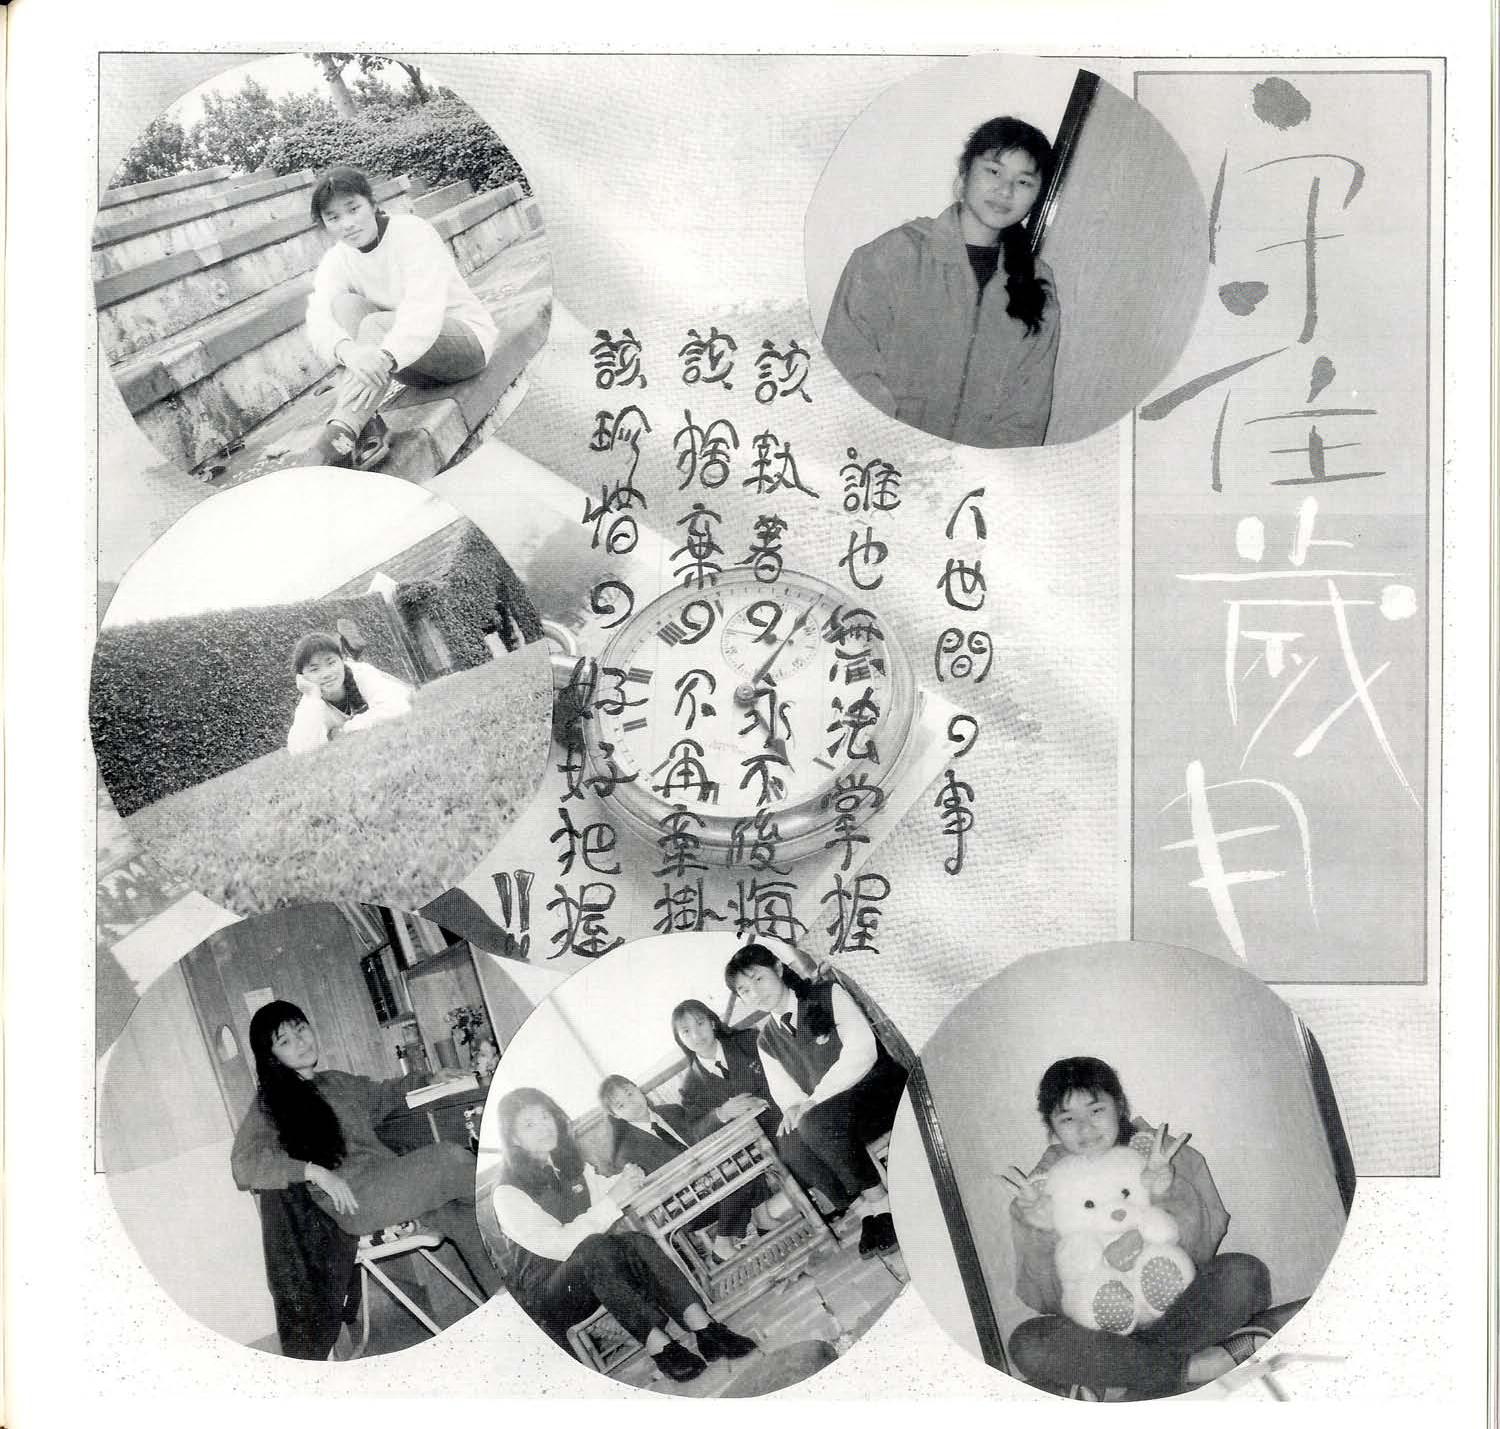 守住歲月
人世間の事
誰也無法掌握
該執著の永不後悔
該捨棄の不再牽掛
該珍惜の好好把握
!!